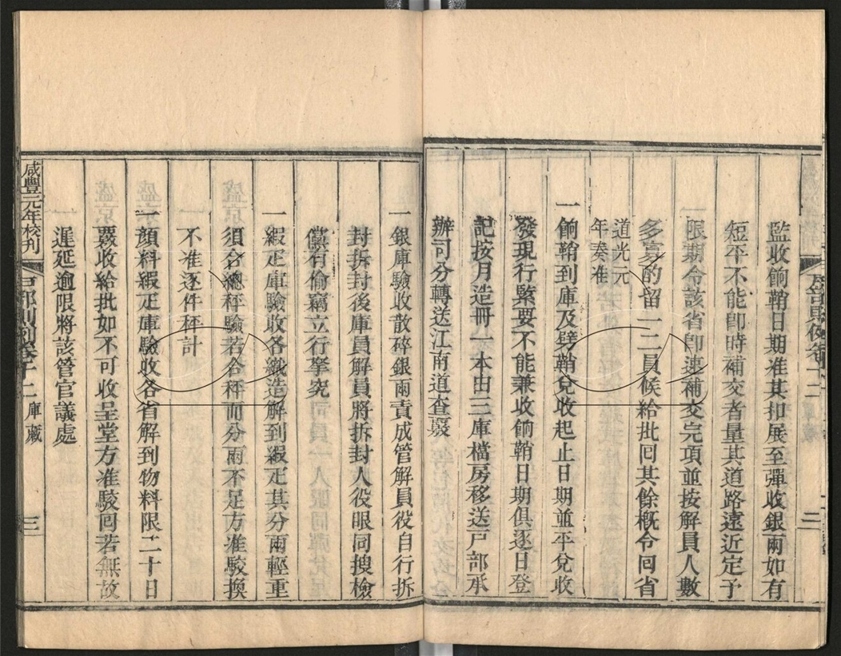 監收餉鞘日期准其扣展至彈收銀兩如有
短平不能卽時補交者量其道路遠近定予
限期令該省卽速補交完項並按解員人數
多寡酌留一二員候給批回其餘槪令回省
道光元
年奏准
一餉鞘到庫及劈鞘兌收起止日期並平兌收
發現行緊要不能兼收餉鞘日期俱逐日登
記按月造冊一本由三庫檔房移送戸部承
辦司分轉送江南道查覈
一銀庫驗收散碎銀兩責成管解員役自行拆
封拆封後庫員解員將拆封人役眼同搜檢
儻有偷竊立行拏究
一緞疋庫驗收各織造解到緞疋其分兩輕重
須合總秤驗若合秤而分兩不足方准駁換
不准逐件秤計
一顏料緞疋庫驗收各省解到物料限二十日
覈收給批如不可收呈堂方准駁回若無故
遲延逾限將該管官議處
咸豐元年校刊
戸部則例卷十二
庫藏
三